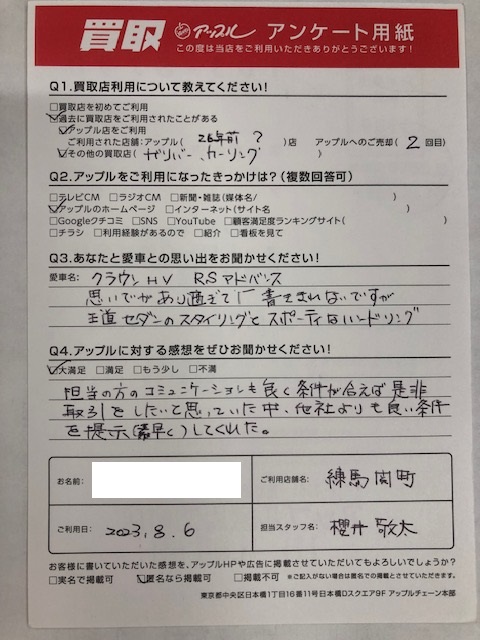 買取 アップル アンケート用紙
この度は当店をご利用いただきありがとうございます!
Q1.買取店利用について教えてください!
□買取店を初めてご利用
☑過去に買取店をご利用されたことがある
☑アップル店をご利用
ご利用された店舗:アップル( 26年前 ? )店 アップルへのご売却( 2 回目)
☑その他の買取店( ガリバー、カーリング )
Q2.アップルをご利用になったきっかけは?(複数回答可)
□テレビCM □ラジオCM □新聞・雑誌(媒体名/ )
☑アップルのホームページ □インターネット(サイト名 )
□Googleクチコミ □SNS □YouTube □顧客満足度ランキングサイト( )
□チラシ □利用経験があるので □紹介 □看板を見て
Q3.あなたと愛車との思い出をお聞かせください!
愛車名: クラウンHV RSアドバンス
思いでがあり過ぎて 書ききれないですが
王道セダンのスタイリングとスポーティなハンドリング
Q4.アップルに対する感想をぜひお聞かせください!
☑大満足 □満足 □もう少し □不満
担当の方のコミュニケーションも良く条件が合えば是非
取引をしたいて思っていた中、他社よりも良い条件
を提示(素早く)してくれた。
お名前:
ご利用店舗名: 練馬関町
ご利用日: 2023.8.6
担当スタッフ名: 櫻井敬太
お客様に書いていただいた感想を、アップルHPや広告に掲載させていただいてもよろしいでしょうか?
□実名で掲載可 ☑匿名なら掲載可 □掲載不可 ※ご記入がない場合は匿名での掲載とさせていただきます。
東京都中央区日本橋1丁目16番11号日本橋Dスクエア9F アップルチェーン本部